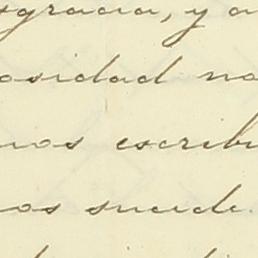 sgracia, y a
osidad no
nos escribi
nos sucede.